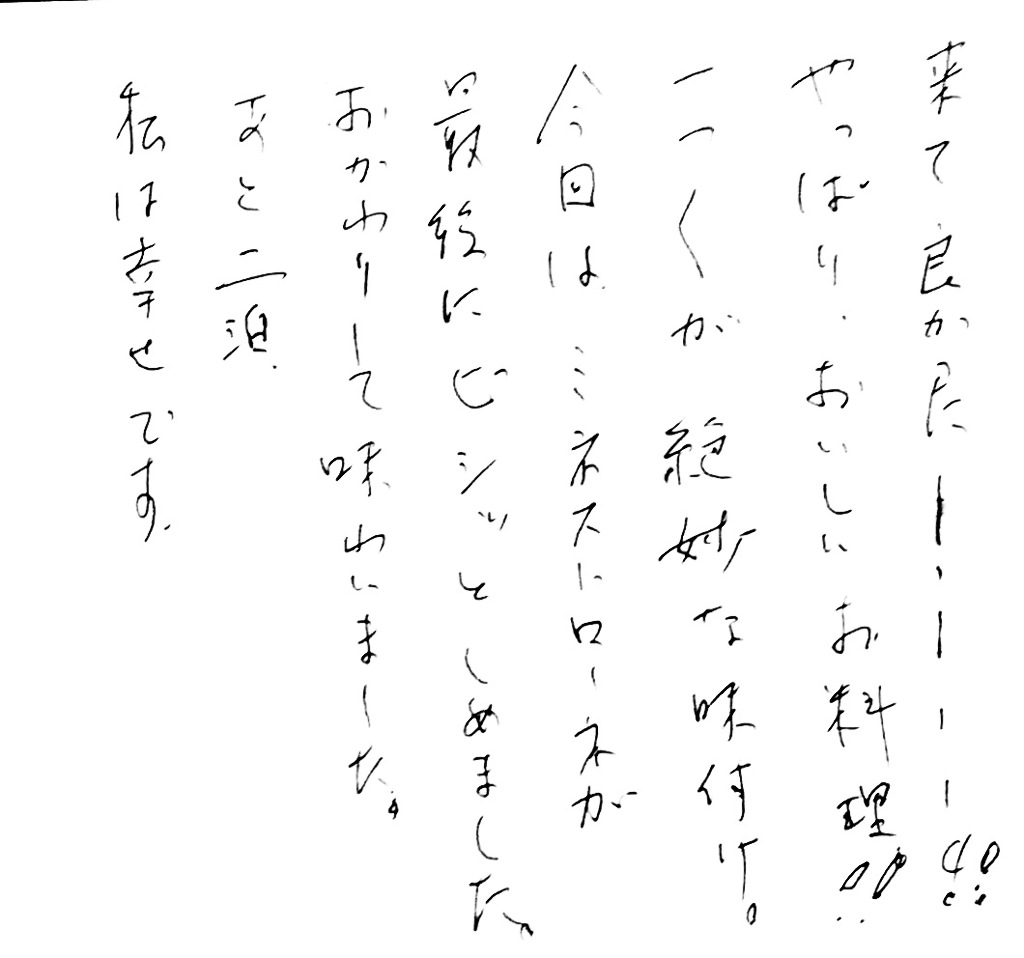 来て良かたーーーーー!!
やっぱり、おいしいお料理!!
一つ〱が絶妙な味付け。
今回はミネストローネが
最終にビシッとしめました。
おかわりして味わいました。
あと二泊
私は幸せです.